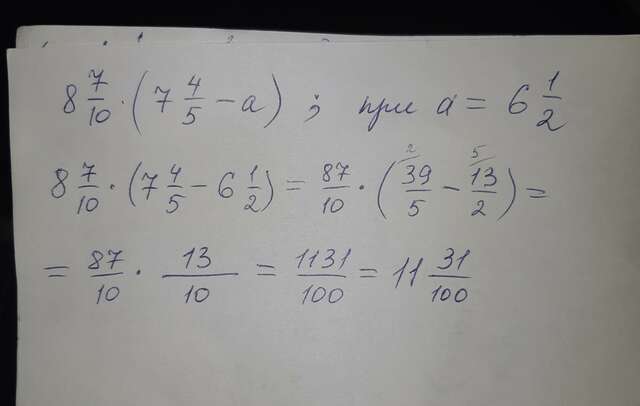 8 7/10 · (7 4/5 - a) ; при a = 6 1/2
8 7/10 · (7 4/5 - 6 1/2) = 87/10 · (39/5 ^2 - 13/2 ^5) =
= 87/10 · 13/10 = 1131/100 = 11 31/100